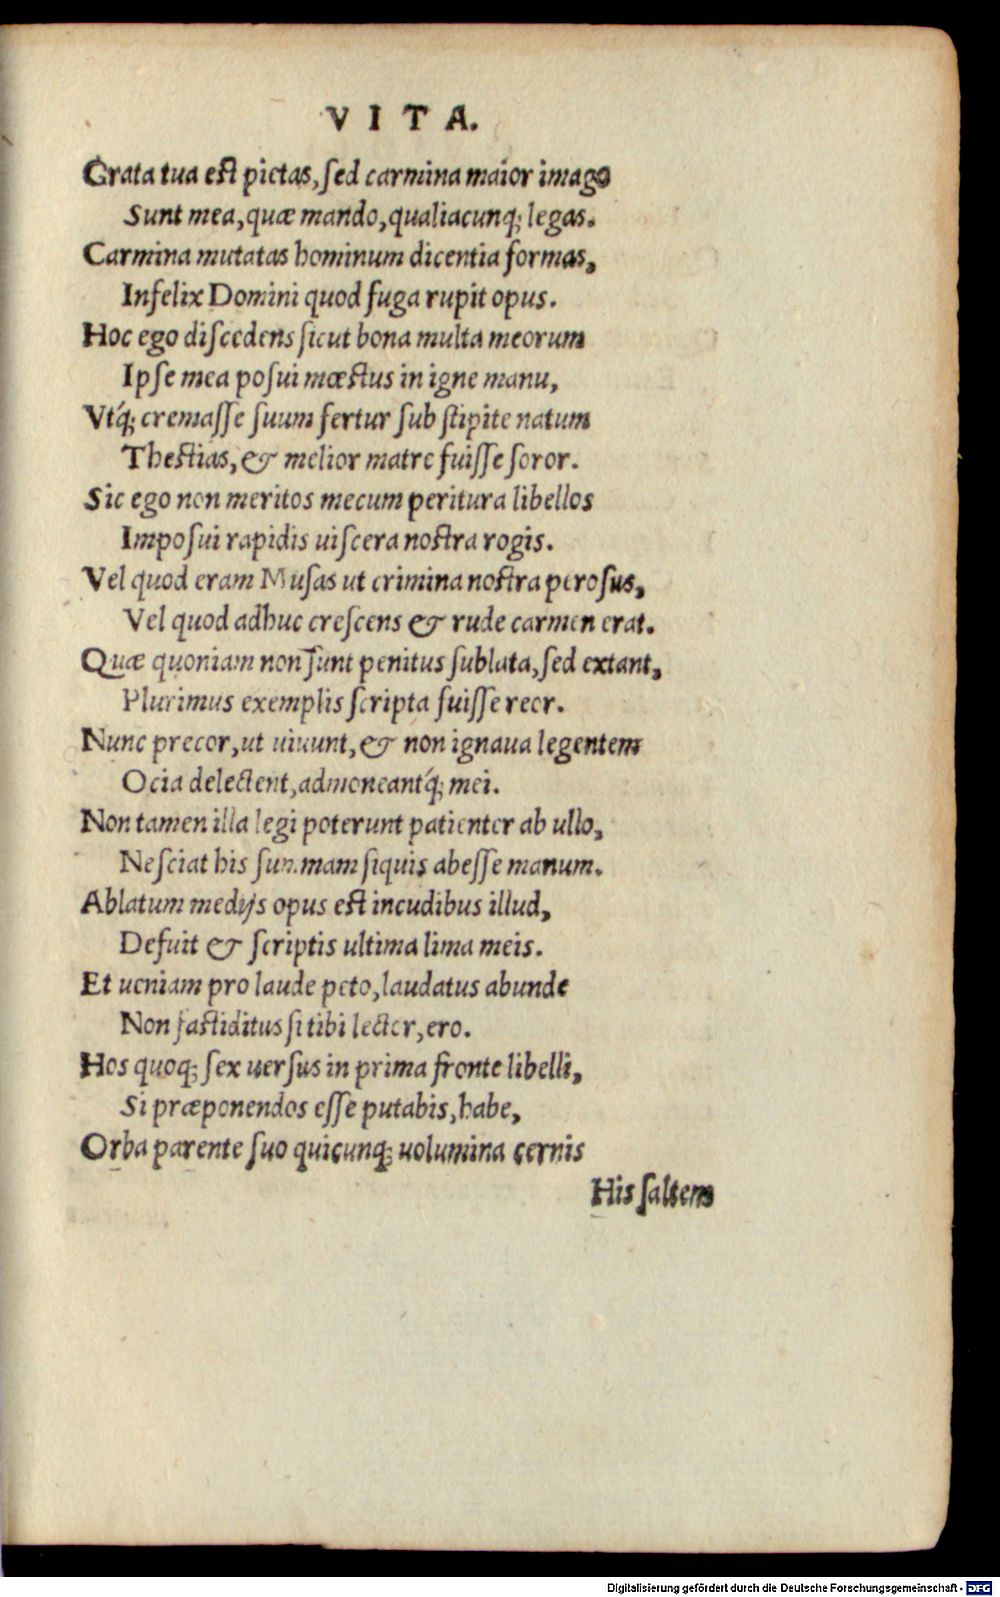 VITA.
Grata tua est pietas, sed carmina maior imago
Sunt mea, quæ mando, qualiacunq; legas.
Carmina mutatas hominum dicentia formas,
Infelix Domini quod fuga rupit opus.
Hoc ego discedens sicut bona multa meorum
Ipse mea posui mœstus in igne manu,
Vtq́; cremasse suum fertur sub stipite natum
Thestias, & melior matre fuisse soror.
Sic ego non meritos mecum peritura libellos
Imposui rapidis uiscera nostra rogis.
Vel quod eram Musas ut crimina nostra perosus,
Vel quod adhuc crescens & rude carmen erat.
Quæ quoniam non sunt penitus sublata, sed extant,
Plurimus exemplis scripta fuisse reor.
Nunc precor, ut uiuunt, & non ignaua legentem
Ocia delectent, admoneantq́; mei.
Non tamen illa legi poterunt patienter ab ullo,
Nesciat his summam siquis abesse manum.
Ablatum medijs opus est incudibus illud,
Defuit & scriptis ultima lima meis.
Et ueniam pro laude peto, laudatus abunde
Non fastiditus si tibi lector, ero.
Hos quoq; sex uersus in prima fronte libelli,
Si præponendos esse putabis, habe,
Orba parente suo quicunq; uolumina cernis
His saltem
Digitalisierung gefördert durch die Deutsche Forschungsgemeinschaft - DFG